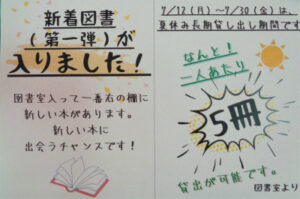 新着図書
(第一弾)が
入りました!
図書室入って一番右の棚に
新しい本があります。
新しい本に
出会うチャンスです!
7/12(月)~7/30(金)は、
夏休み長期貸し出し期間です
なんと!
一人あたり
5冊
貸出が可能です。
図書室より